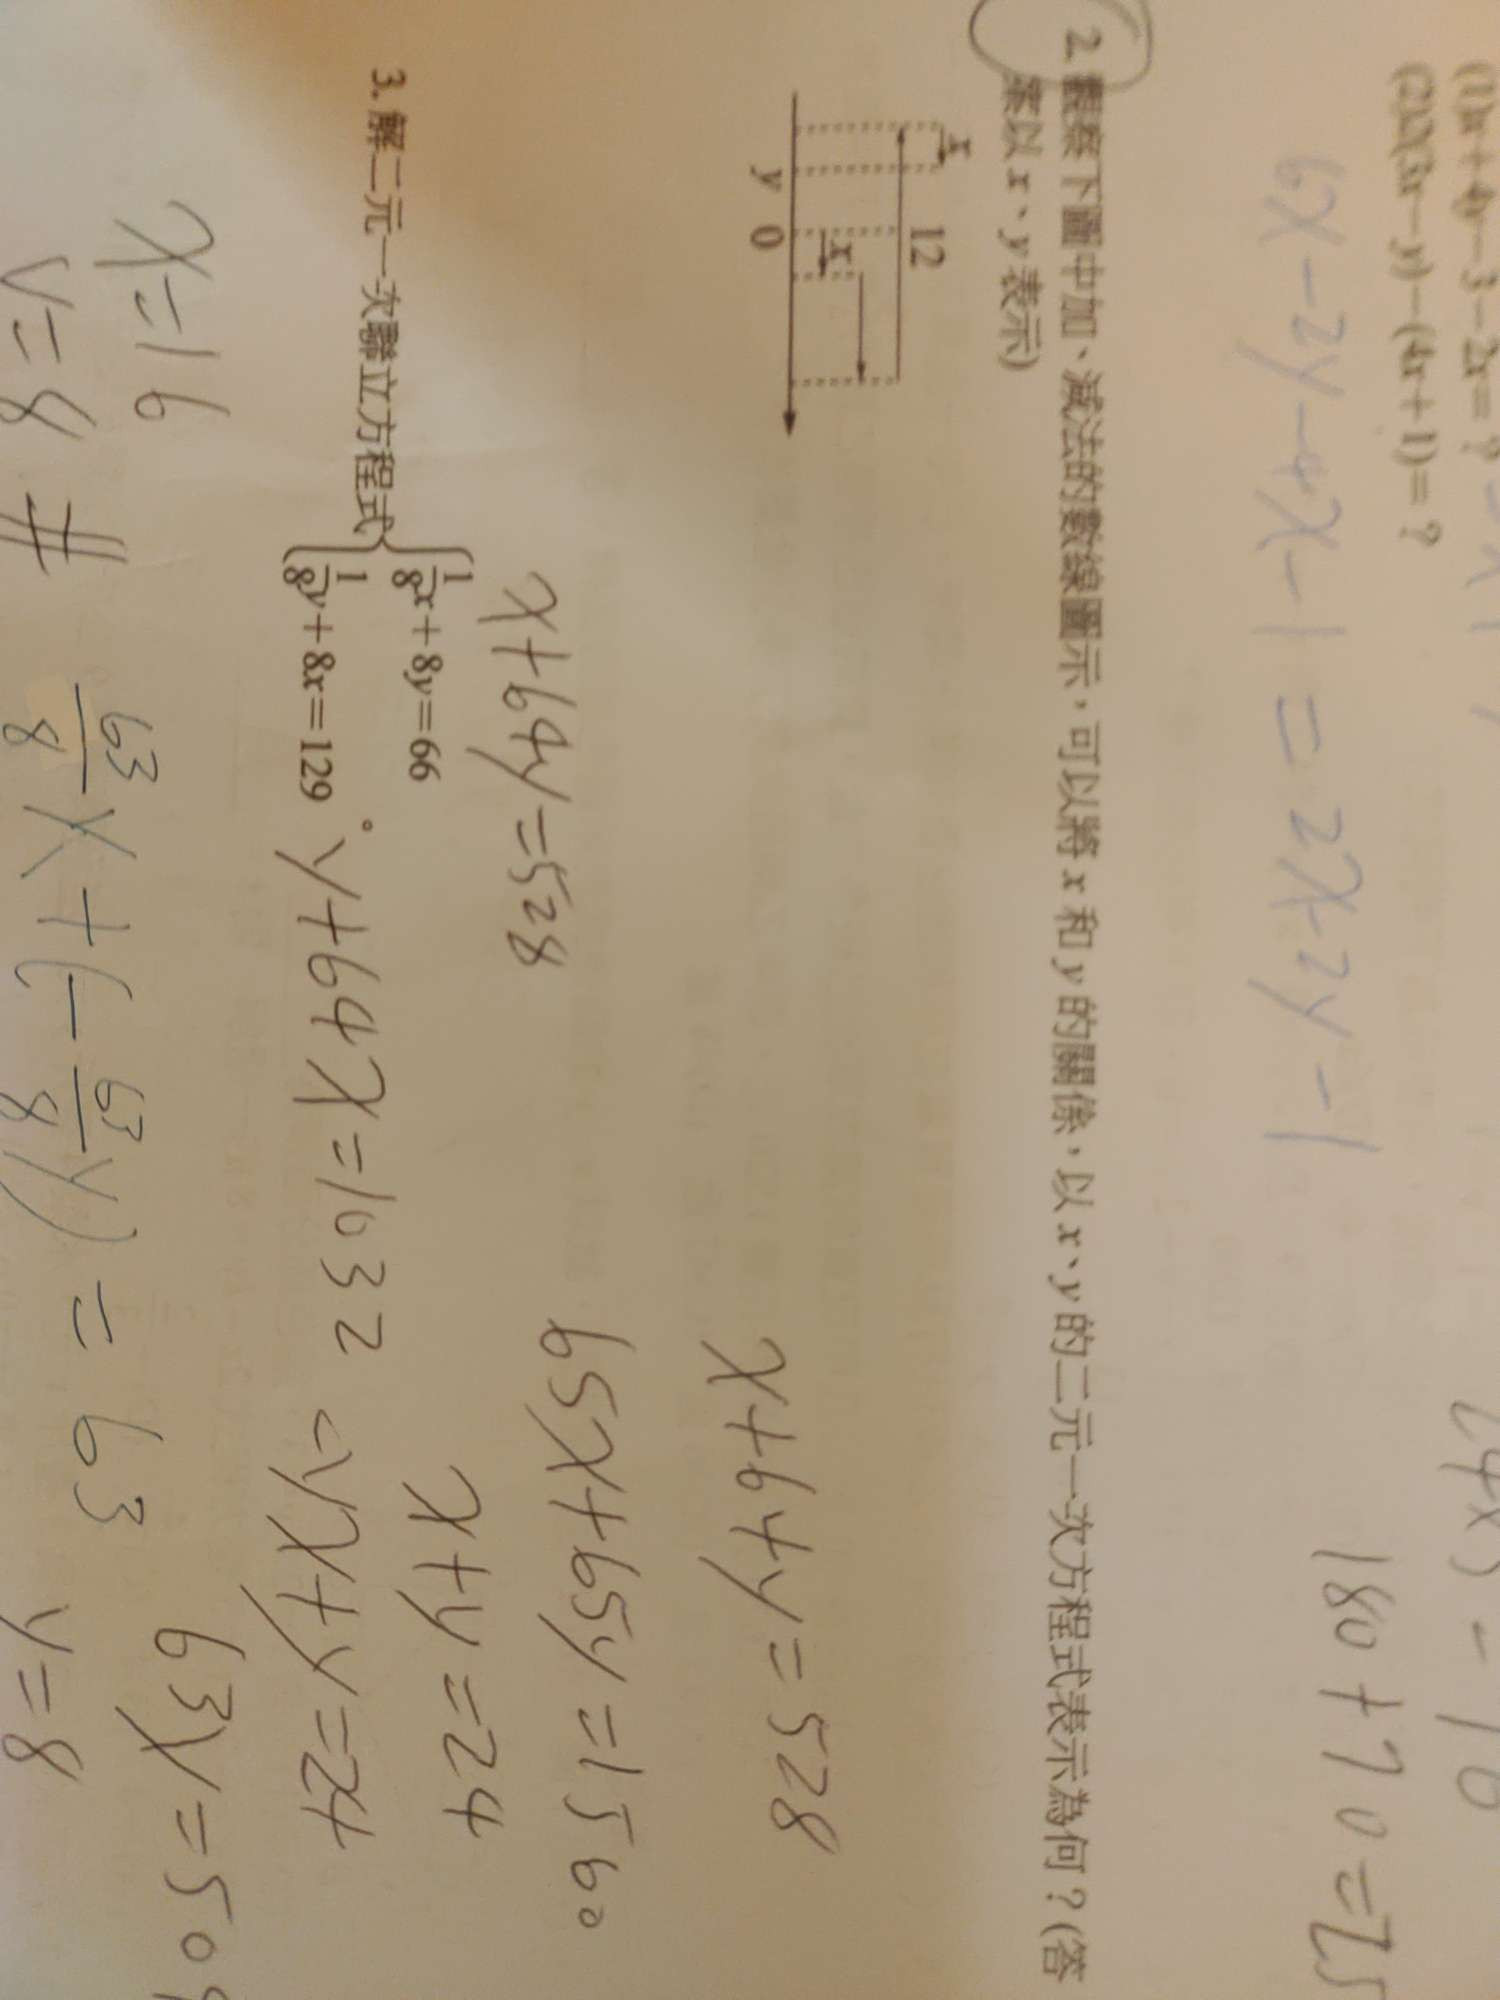 (1)x+4y-3-2x=?
(2)2(3x-y)-(4x+1)=?
6x-2y-4x-1=2x-2y-1
180+70=25
2. 觀察下圖中加、減法的數線圖示,可以將 x 和 y 的關係,以 x、y 的二元一次方程式表示為何?(答
案以 x、y 表示)
x
12
x
y 0
x+64y=528
65x+65y=1560
x+y=24
x+64y=528
3. 解二元一次聯立方程式 {1/8x+8y=66
1/8y+8x=129。
y+64x=1032
x+y=24
x=16
y=8 #
63/8x+(-63/8y)=63
63y=504
y=8